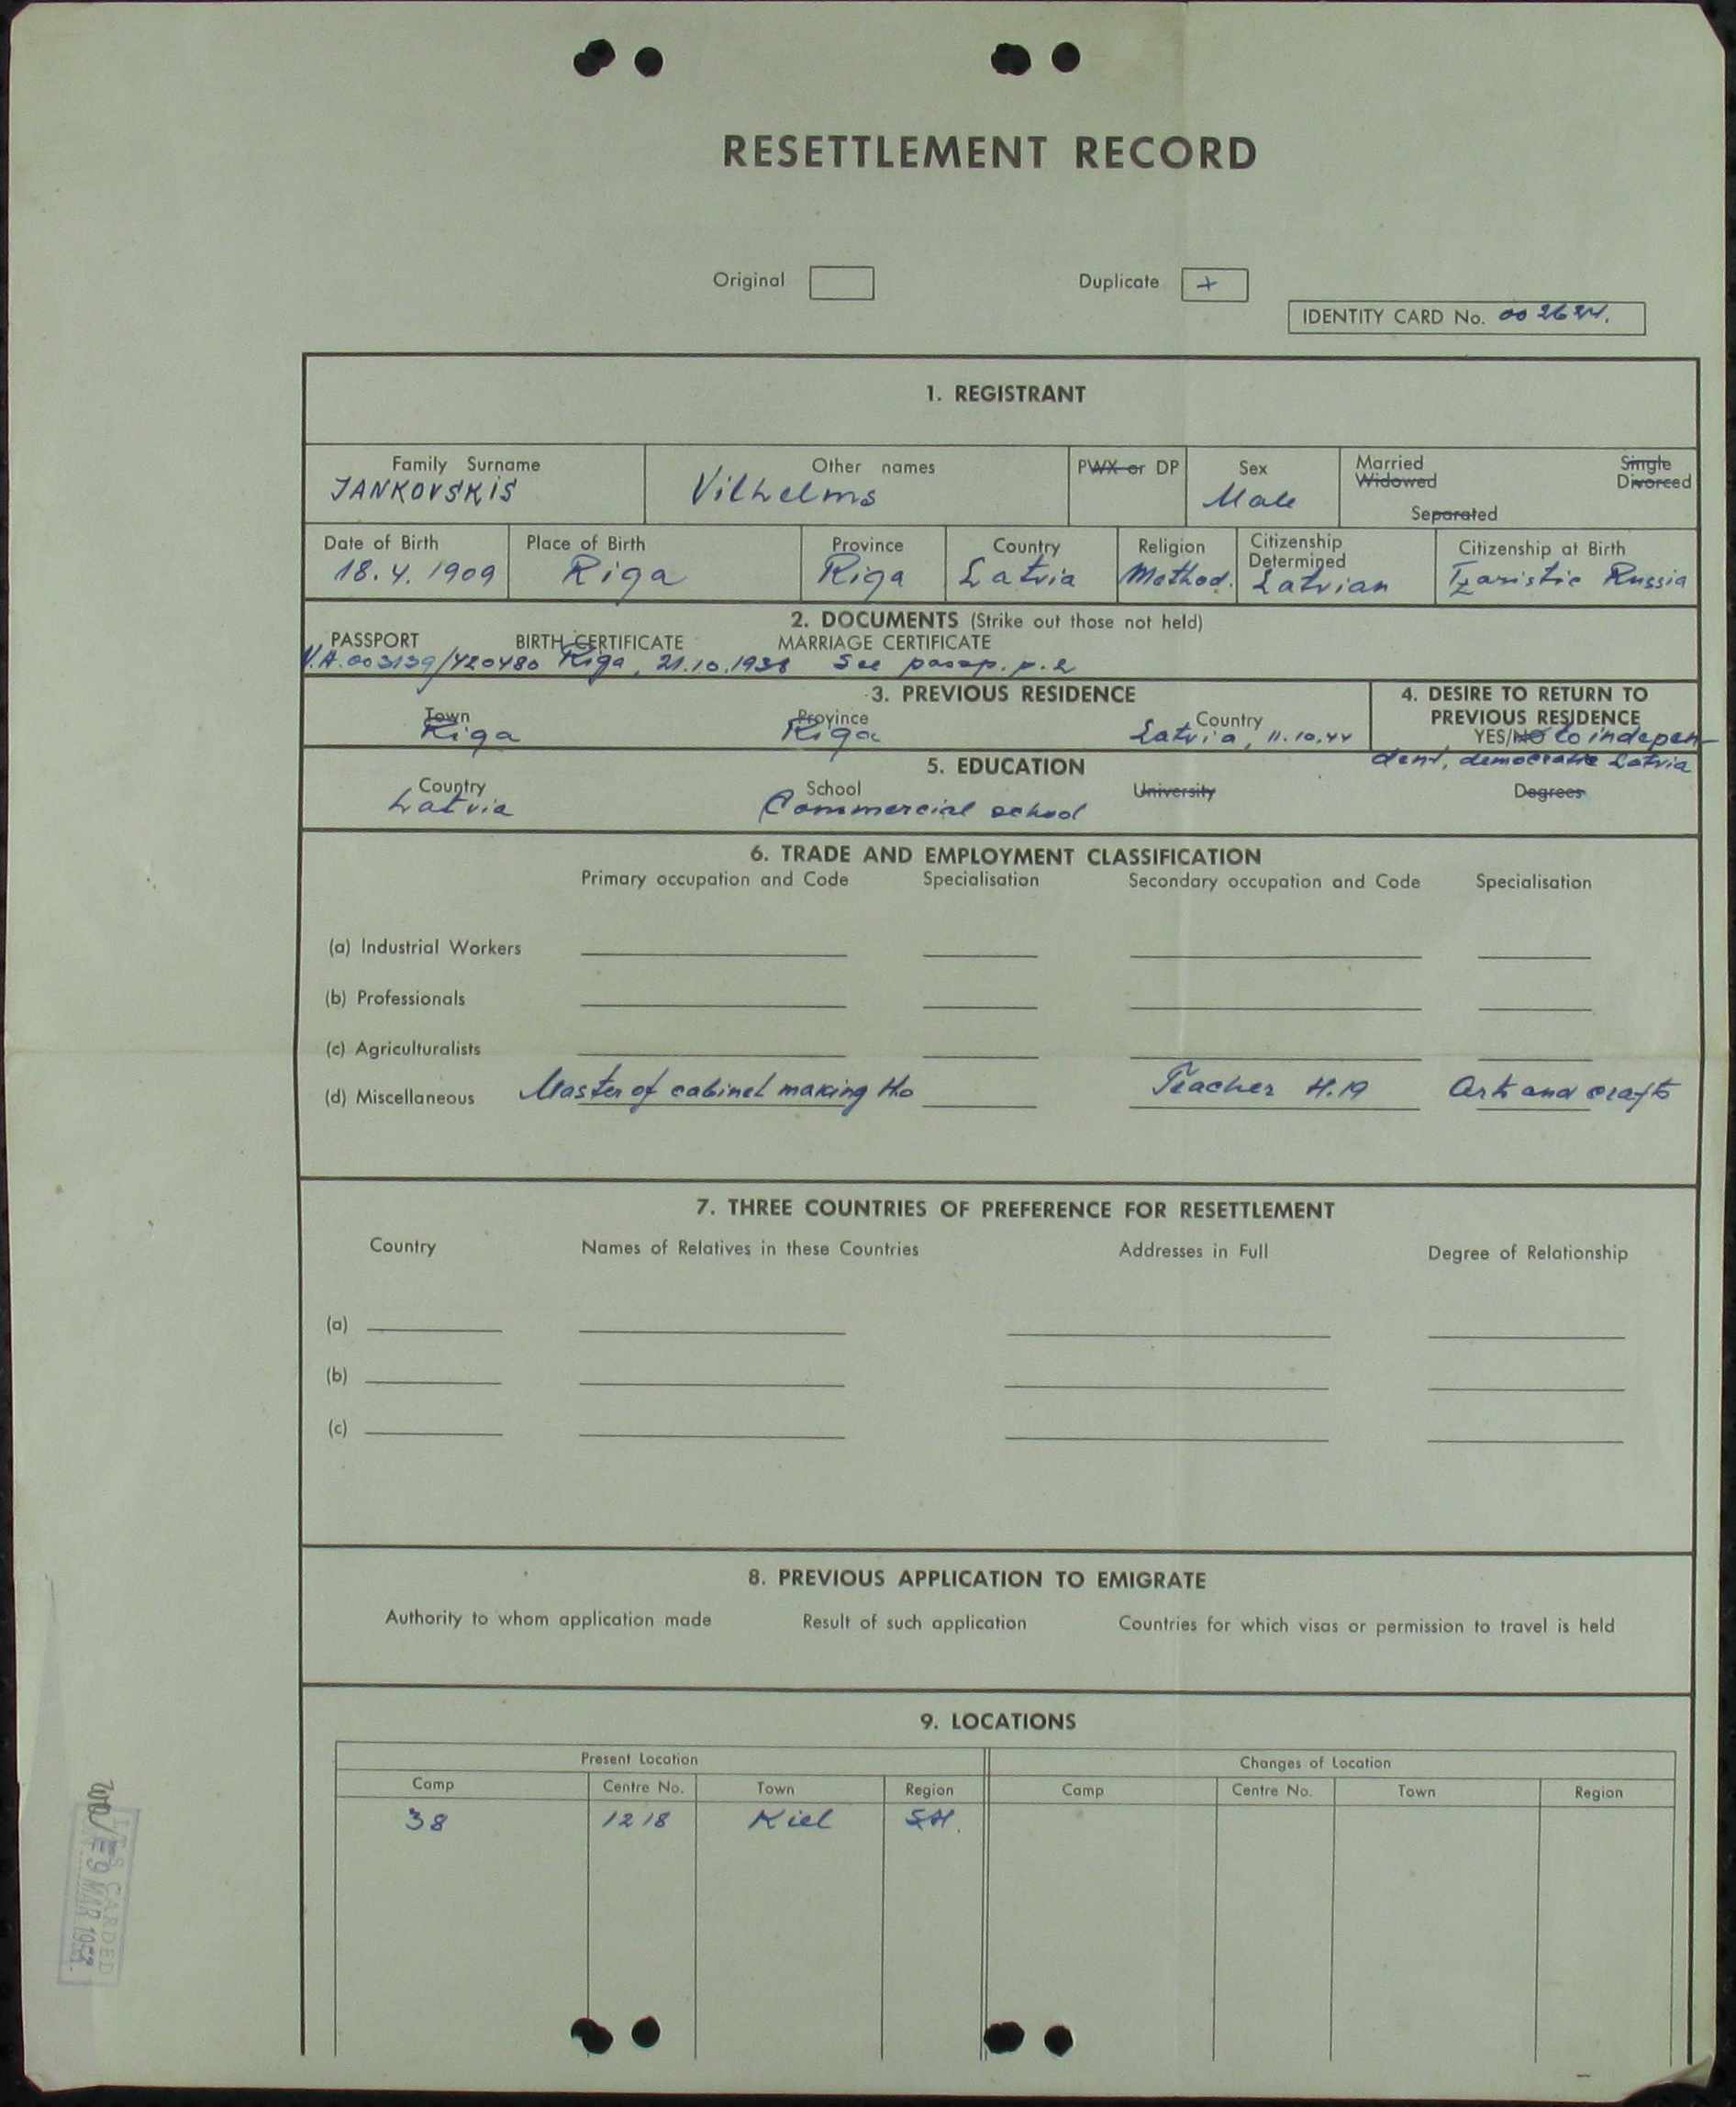 RESETTLEMENT RECORD
Original Duplicate +
IDENTITY CARD No. 002624.
1. REGISTRANT
Family Surname Other names PWX or DP Sex Married Single
Widowed Divorced
Separated
JANKOVSKIS Vilhelms Male
Date of Birth Place of Birth Province Country Religion Citizenship Determined Citizenship at Birth
18.4.1909 Riga Riga Latvia Method. Latvian Tzaristic Russia
2. DOCUMENTS (Strike out those not held)
PASSPORT BIRTH CERTIFICATE MARRIAGE CERTIFICATE
V.A.003139/420480 Riga, 21.10.1938 See passp. p. 2
3. PREVIOUS RESIDENCE
Town Province Country
Riga Riga Latvia, 11.10.44
4. DESIRE TO RETURN TO
PREVIOUS RESIDENCE
YES/NO to indepen-
dent, democratic Latvia
5. EDUCATION
Country School University Degrees
Latvia Commercial school
6. TRADE AND EMPLOYMENT CLASSIFICATION
Primary occupation and Code Specialisation Secondary occupation and Code Specialisation
(a) Industrial Workers
(b) Professionals
(c) Agriculturalists
(d) Miscellaneous Master of cabinet making Teacher H.19 Arts and crafts
7. THREE COUNTRIES OF PREFERENCE FOR RESETTLEMENT
Country Names of Relatives in these Countries Addresses in Full Degree of Relationship
(a)
(b)
(c)
8. PREVIOUS APPLICATION TO EMIGRATE
Authority to whom application made Result of such application Countries for which visas or permission to travel is held
9. LOCATIONS
Present Location Changes of Location
Camp Centre No. Town Region Camp Centre No. Town Region
38 1218 Kiel S.H.
I.T.S CARDED
9 MAR 1952